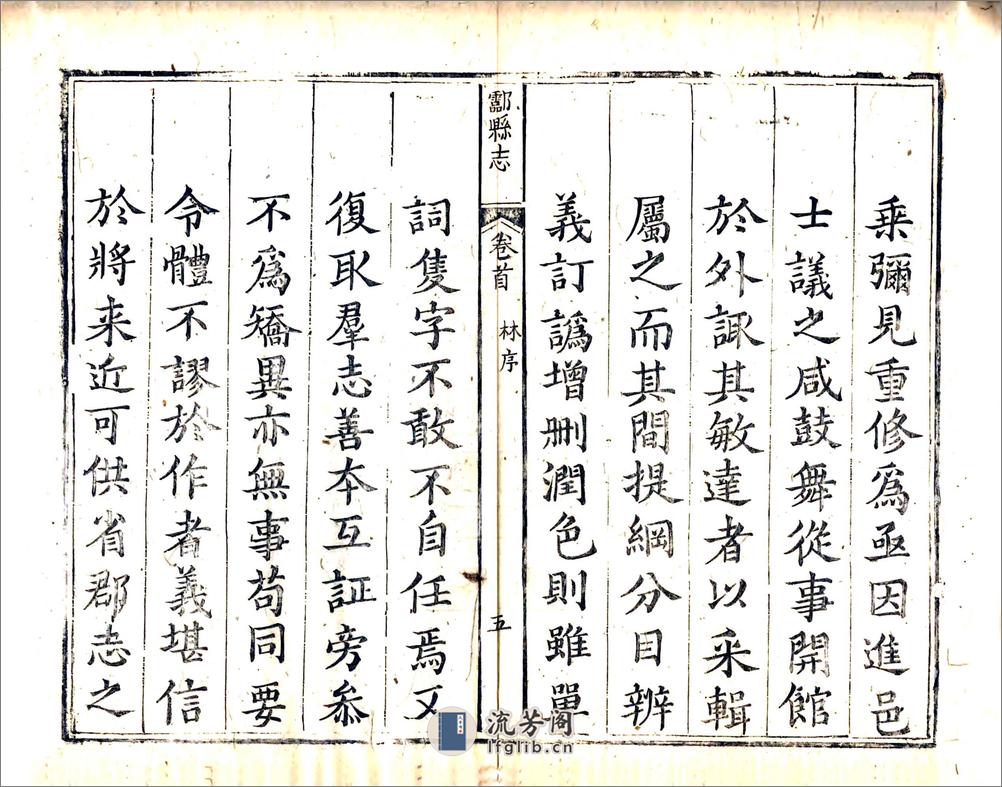 乗彌見重修爲亟因進邑
士議之咸鼓舞從事開館
於外諏其敏達者以采輯
屬之而其間提綱分目辨
義訂譌增刪潤色則雖單
酃縣志
卷首
林序
五
詞隻字不敢不自任焉又
復取羣志善本互証旁叅
不爲矯異亦無事苟同要
令體不謬於作者義堪信
於將来近可供省郡志之
流芳阁
lfglib.cn